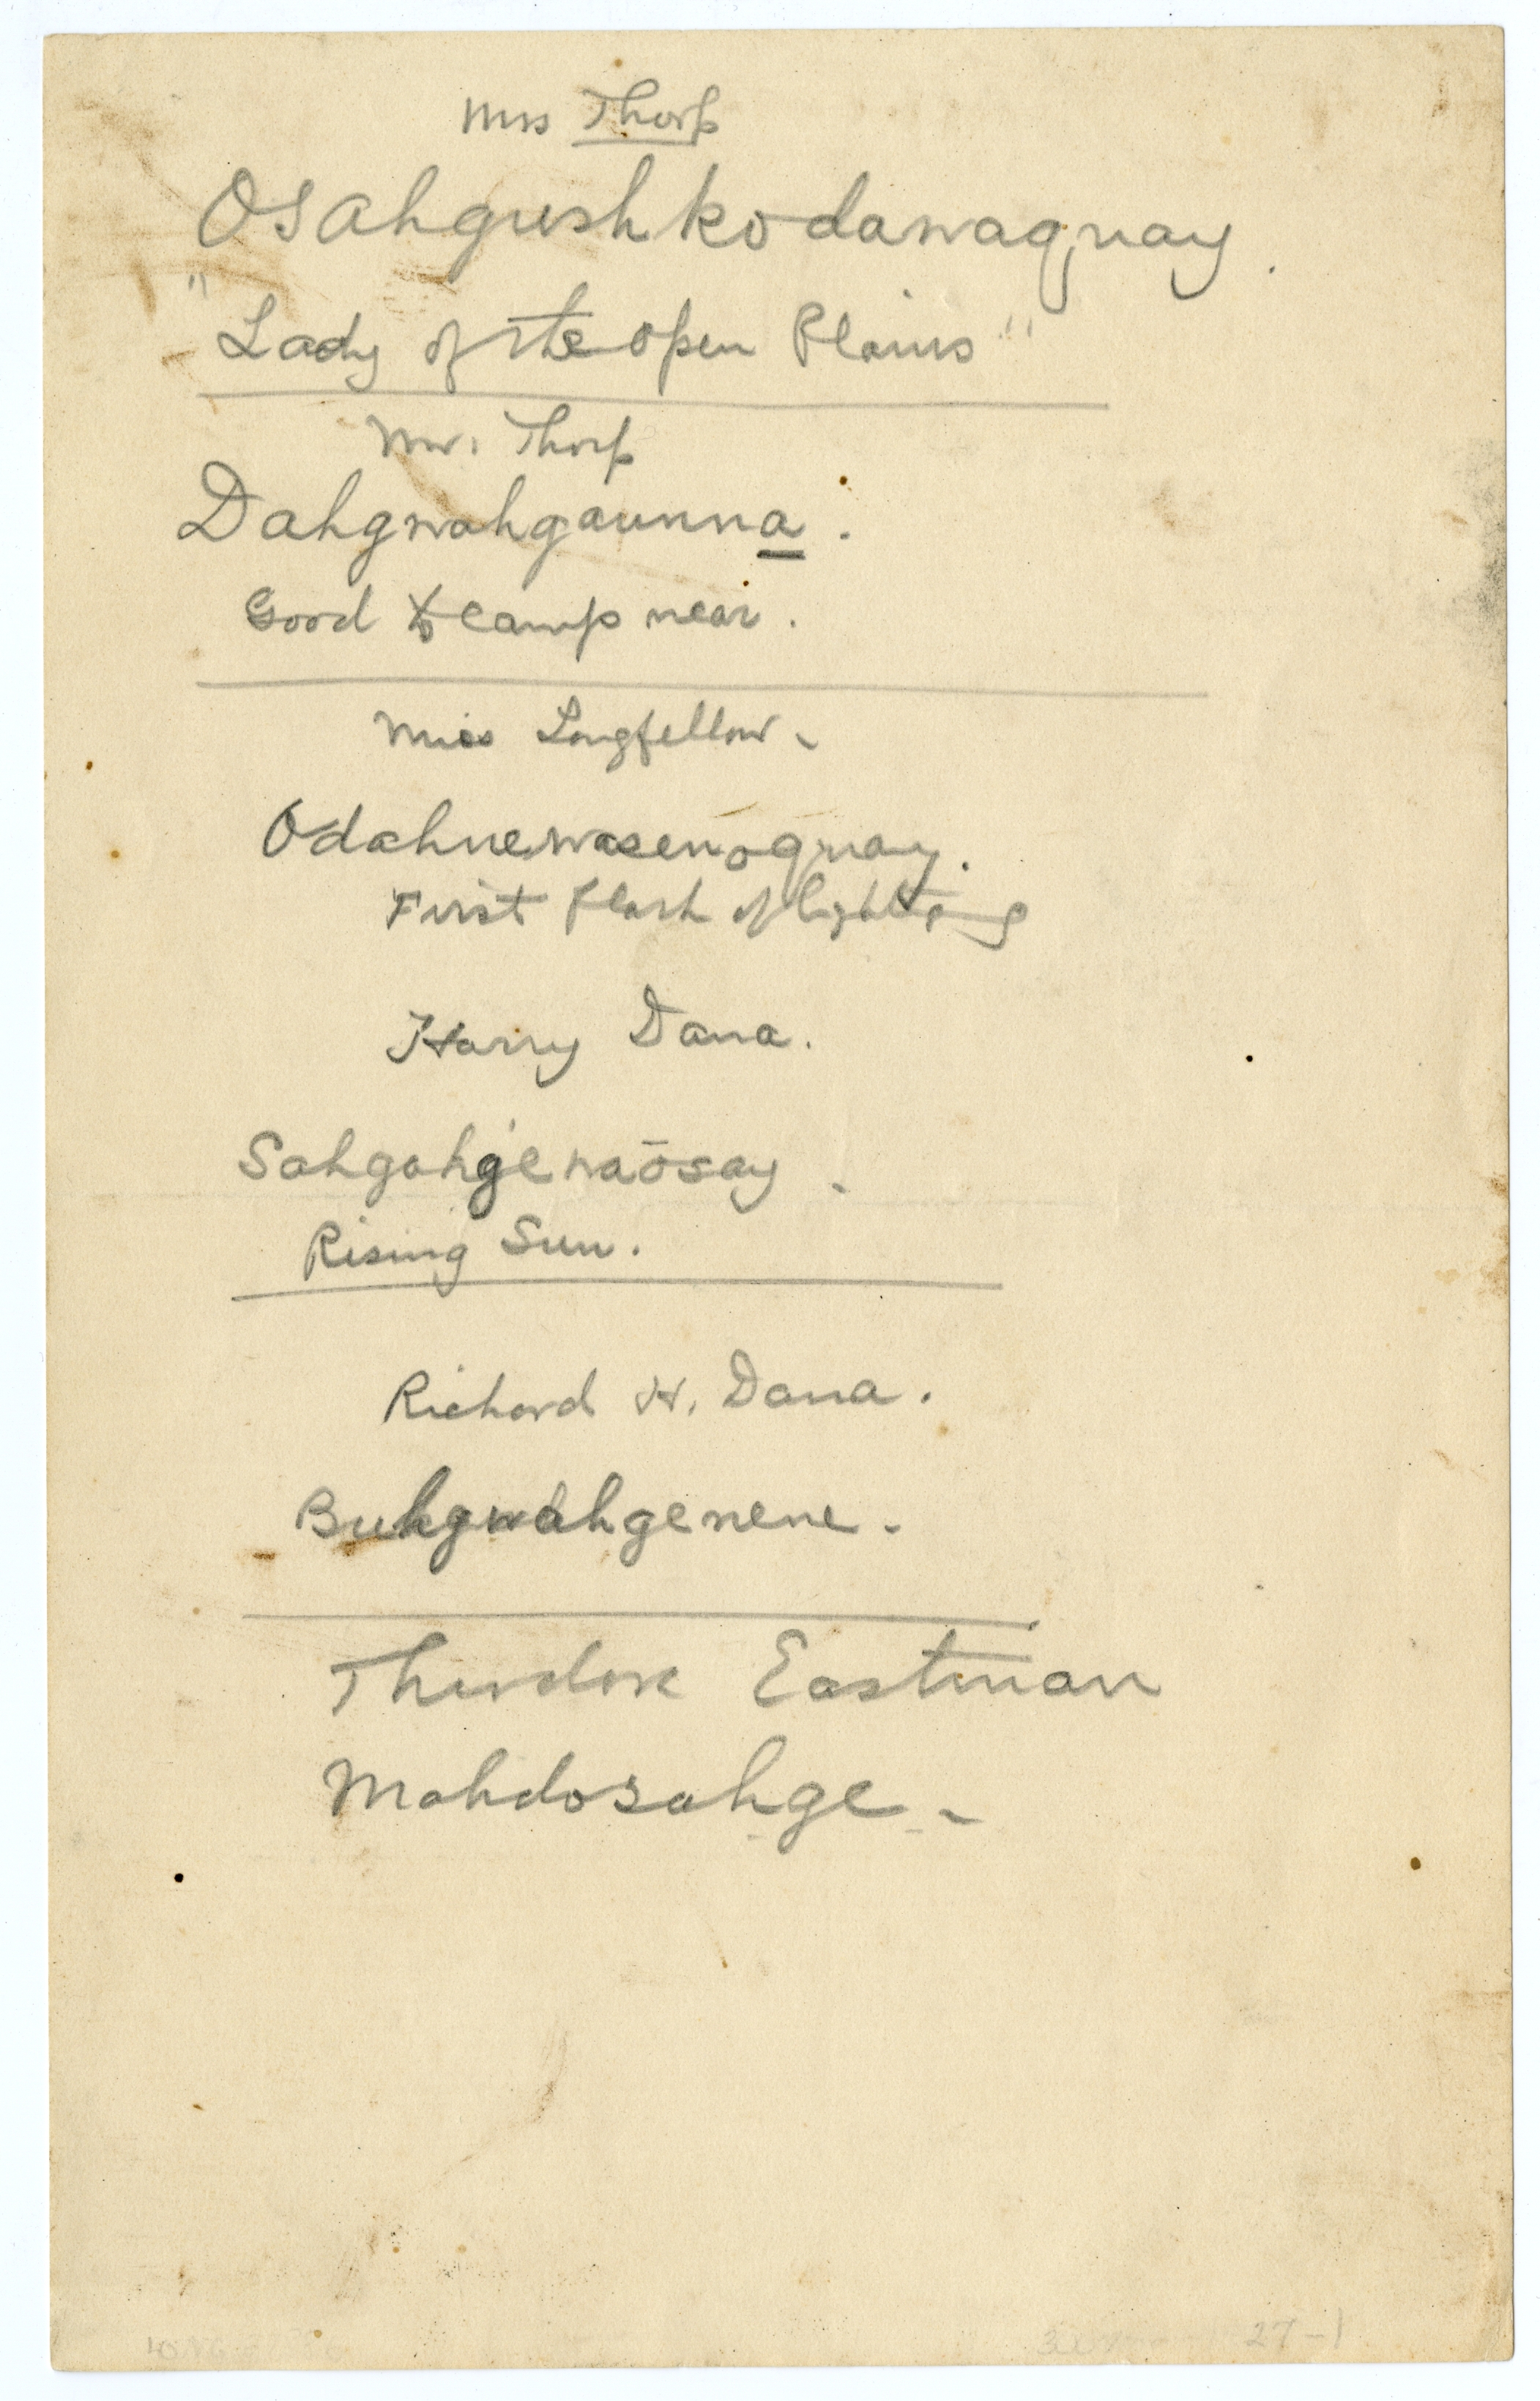 Mrs Thorp
Osahgushkodawaquay.
"Lady of the open Plains"
Mr. Thorp
Dahgwahgaunna.
Good to camp near.
Miss Longfellow -
Odahnewasenoquay.
First Flash of lightning
Harry Dana.
Sahgahgewaōsay -
Rising Sun.
Richard H. Dana.
Buhgwahgenene.
Theodore Eastman
Mahdosahge -
27-1